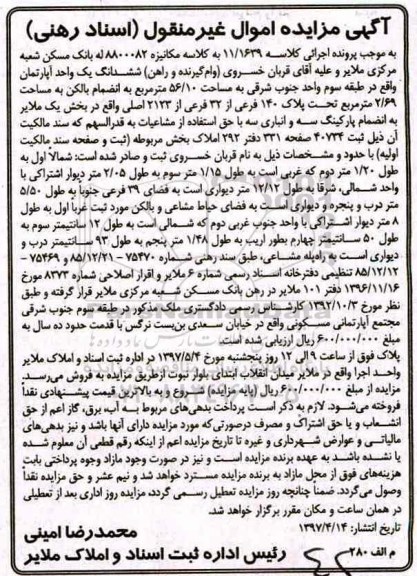 آگهی مزایده اموال غیر منقول (اسناد رهنی)
به موجب پرونده اجرائی کلاسه ۱۱/۱۶۳۹ به کلاسه مکانیزه ۸۸۰۰۰۸۲ له بانک مسکن شعبه
مرکزی ملایر و علیه آقای قربان خسروی (وام‌گیرنده و راهن) ششدانگ یک واحد آپارتمان
واقع در طبقه سوم واحد جنوب شرقی به مساحت ۵۶/۱۰ مترمربع به انضمام بالکن به مساحت
۲/۶۹ مترمربع تحت پلاک ۱۴۰ فرعی از ۳۲ فرعی از ۲۱۲۳ اصلی واقع در بخش یک ملایر
به انضمام پارکینگ سه و انباری سه با حق استفاده از مشاعیات به قدرالسهم که سند مالکیت
آن ذیل ثبت ۴۰۷۳۴ صفحه ۳۳۱ دفتر ۲۹۲ املاک بخش مربوطه (ثبت و صفحه سند مالکیت
اولیه) با حدود و مشخصات ذیل به نام قربان خسروی ثبت و صادر شده است: شمالاً اول به
طول ۱/۲۰ متر دوم که غربی است به طول ۱/۱۵ متر سوم به طول ۲/۰۵ متر دیوار اشتراکی با
واحد شمالی، شرقا به طول ۱۲/۱۲ متر دیواری است به فضای ۳۹ فرعی جنوبا به طول ۵/۵۰
متر درب و پنجره و دیواری است به فضای حیاط مشاعی و بالکن مورد ثبت غربا اول به طول
۸ متر دیوار اشتراکی با واحد جنوب غربی دوم که شمالی است به طول ۱۲ سانتیمتر سوم به
طول ۵۰ سانتیمتر چهارم بطور اریب به طول ۱/۴۸ متر پنجم به طول ۹۳ سانتیمتر درب و
دیواری است به راه‌پله مشاعی، طبق سند رهنی شماره ۷۵۴۷۰ - ۸۵/۱۲/۲۱ و ۷۵۴۶۹ -
۸۵/۱۲/۱۲ تنظیمی دفترخانه اسناد رسمی شماره ۶ ملایر و اقرار اصلاحی شماره ۸۳۷۳ مورخ
۱۳۹۶/۱۱/۱۶ دفتر ۱۰۱ ملایر در رهن بانک مسکن شعبه مرکزی ملایر قرار گرفته و طبق
نظر مورخ ۱۳۹۲/۱۰/۳ کارشناس رسمی دادگستری ملک مذکور در طبقه سوم جنوب شرقی
مجتمع آپارتمانی مسکونی واقع در خیابان سعدی بن‌بست نرگس با قدمت حدود ده سال به
مبلغ ۶۰۰/۰۰۰/۰۰۰ ریال ارزیابی شده است.
پلاک فوق از ساعت ۹ الی ۱۲ روز پنجشنبه مورخ ۱۳۹۷/۵/۴ در اداره ثبت اسناد و املاک ملایر
واحد اجرا واقع در ملایر میدان انقلاب ابتدای بلوار نبوت از طریق مزایده به فروش می‌رسد.
مزایده از مبلغ ۶۰۰/۰۰۰/۰۰۰ ریال (پایه مزایده) شروع و به بالاترین قیمت پیشنهادی نقداً
فروخته می‌شود. لازم به ذکر است پرداخت بدهی‌های مربوط به آب، برق، گاز اعم از حق
انشعاب و یا حق اشتراک و مصرف درصورتی‌که مورد مزایده دارای آنها باشد و نیز بدهی‌های
مالیاتی و عوارض شهرداری و غیره تا تاریخ مزایده اعم از اینکه رقم قطعی آن معلوم شده
یا نشده باشد به عهده برنده مزایده است و نیز در صورت وجود مازاد وجوه پرداختی بابت
هزینه‌های فوق از محل مازاد به برنده مزایده مسترد خواهد شد و نیم عشر و حق مزایده نقداً
وصول می‌گردد. ضمناً چنانچه روز مزایده تعطیل رسمی گردد، مزایده روز اداری بعد از تعطیلی
در همان ساعت و مکان مقرر برگزار خواهد شد.
تاریخ انتشار: ۱۳۹۷/۴/۱۴
محمدرضا امینی
م الف ۲۸۰
رئیس اداره ثبت اسناد و املاک ملایر